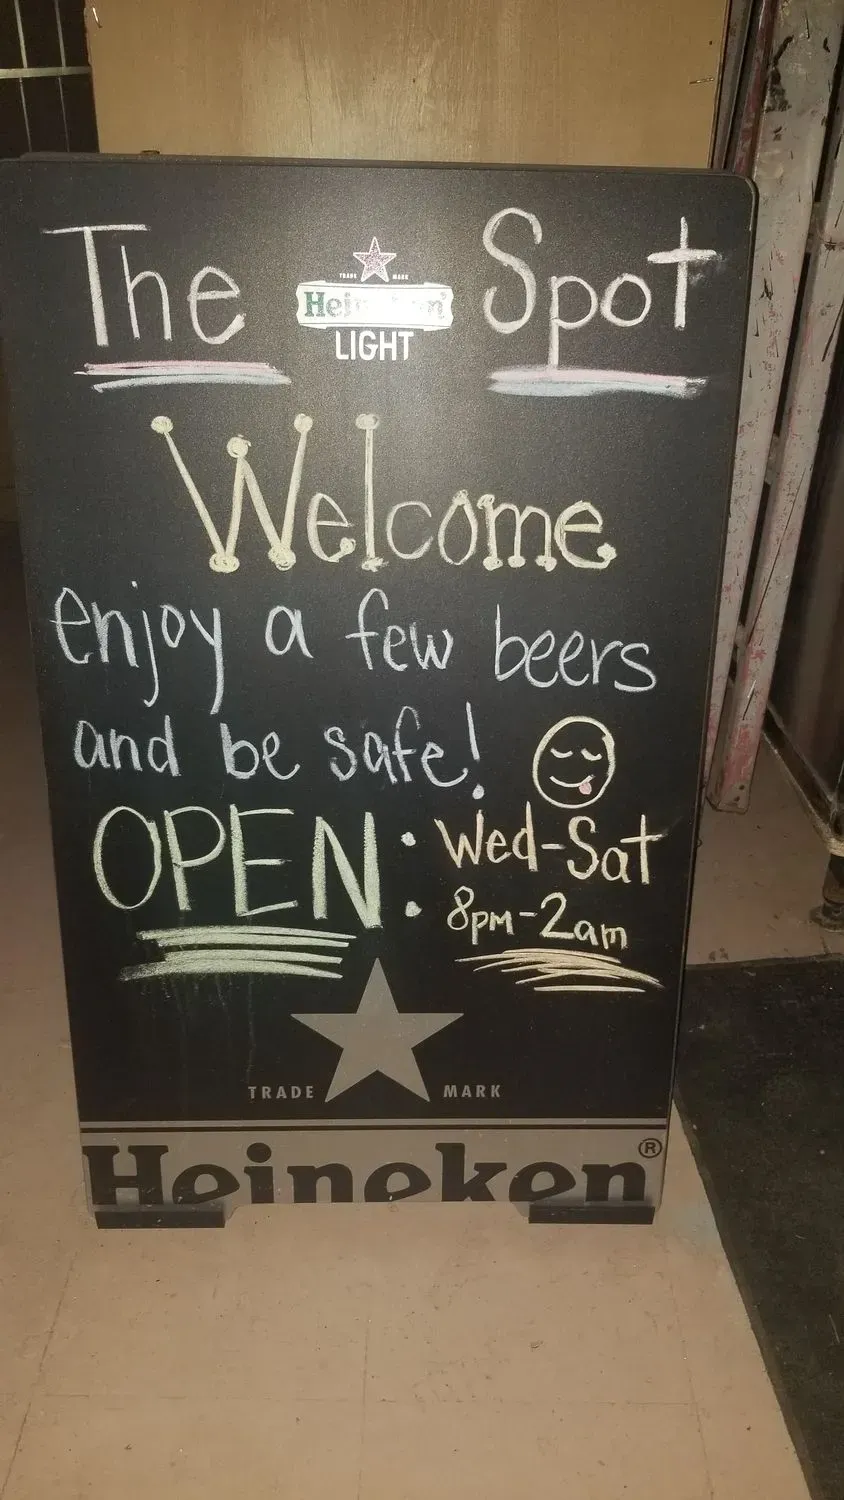 The Spot
TRADE MARK
Heineken
LIGHT
Welcome
enjoy a few beers
and be safe!
OPEN: Wed-Sat
8pm-2am
TRADE MARK
Heineken®